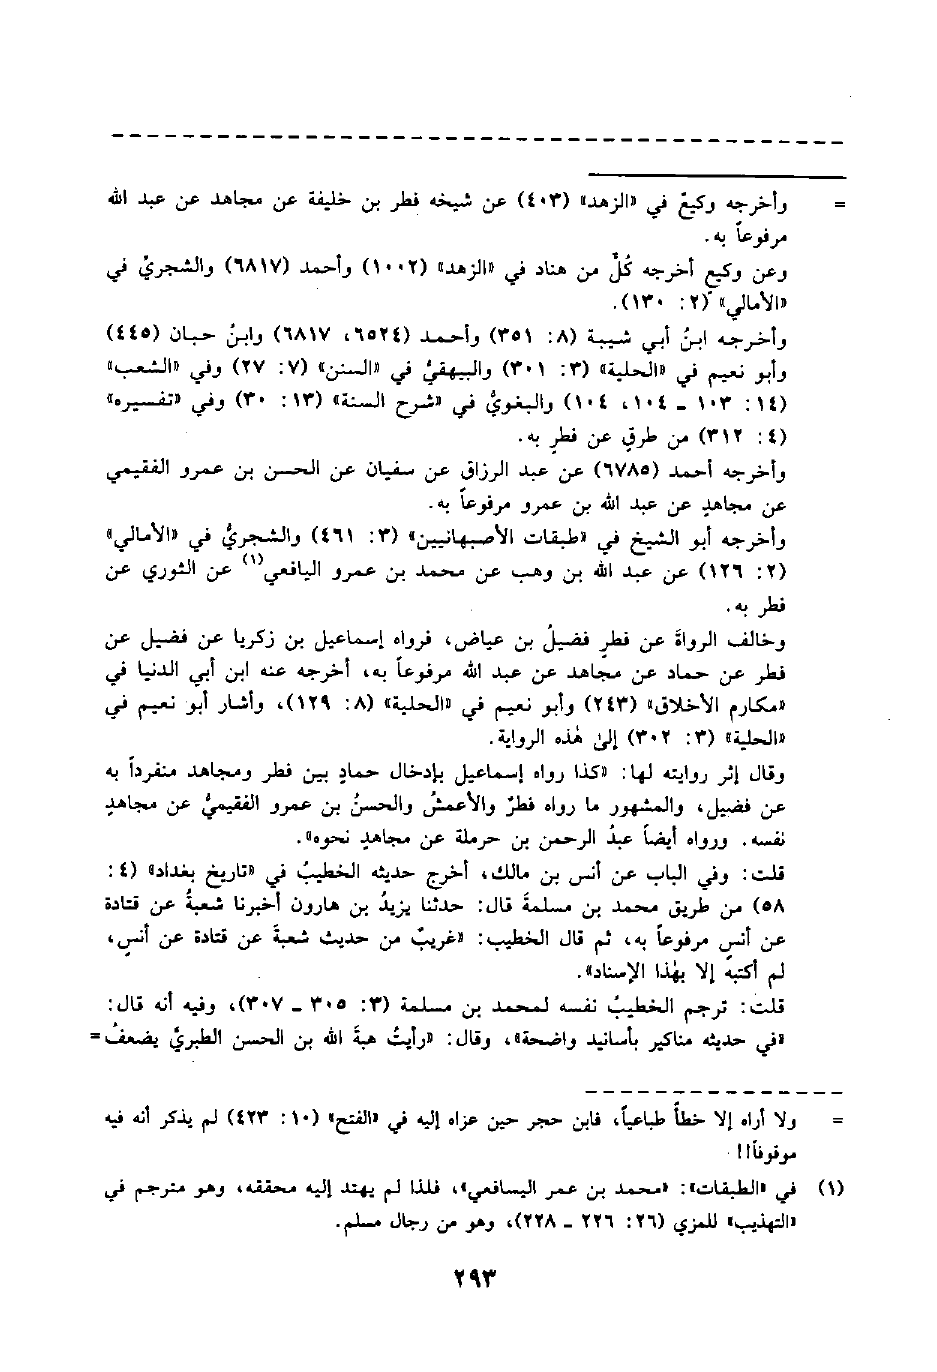 = وأخرجه وكيعٌ في «الزهد» (٤٠٣) عن شيخه فطر بن خليفة عن مجاهد عن عبد الله
مرفوعاً به.
وعن وكيع أخرجه كُلٌّ من هناد في «الزهد» (١٠٠٢) وأحمد (٦٨١٧) والشجريُّ في
«الأمالي» (٢: ١٣٠).
وأخرجه ابنُ أبي شيبة (٨: ٣٥١) وأحمد (٦٥٢٤، ٦٨١٧) وابنُ حبان (٤٤٥)
وأبو نعيم في «الحلية» (٣: ٣٠١) والبيهقيُّ في «السنن» (٧: ٢٧) وفي «الشعب»
(١٤: ١٠٣ ـ ١٠٤، ١٠٤) والبغويُّ في «شرح السنة» (١٣: ٣٠) وفي «تفسيره»
(٤: ٣١٢) من طرقٍ عن فطرٍ به.
وأخرجه أحمد (٦٧٨٥) عن عبد الرزاق عن سفيان عن الحسن بن عمرو الفقيمي
عن مجاهدٍ عن عبد الله بن عمرو مرفوعاً به.
وأخرجه أبو الشيخ في «طبقات الأصبهانيين» (٣: ٤٦١) والشجريُّ في «الأمالي»
(٢: ١٢٦) عن عبد الله بن وهب عن محمد بن عمرو اليافعي(١) عن الثوري عن
فطر به.
وخالف الرواةَ عن فطرٍ فضيلُ بن عياض، فرواه إسماعيل بن زكريا عن فضيل عن
فطر عن حماد عن مجاهد عن عبد الله مرفوعاً به، أخرجه عنه ابن أبي الدنيا في
«مكارم الأخلاق» (٢٤٣) وأبو نعيم في «الحلية» (٨: ١٢٩)، وأشار أبو نعيم في
«الحلية» (٣: ٣٠٢) إلىٰ هٰذه الرواية.
وقال إثر روايته لها: «كذا رواه إسماعيل بإدخال حمادٍ بين فطر ومجاهد منفرداً به
عن فضيل، والمشهور ما رواه فطرٌ والأعمشُ والحسنُ بن عمرو الفقيميُّ عن مجاهدٍ
نفسه. ورواه أيضاً عبدُ الرحمن بن حرملة عن مجاهدٍ نحوه».
قلت: وفي الباب عن أنس بن مالك، أخرج حديثه الخطيبُ في «تاريخ بغداد» (٤:
٥٨) من طريق محمد بن مسلمةَ قال: حدثنا يزيدُ بن هارون أخبرنا شعبةُ عن قتادة
عن أنسٍ مرفوعاً به، ثم قال الخطيب: «غريبٌ من حديث شعبةَ عن قتادة عن أنسٍ،
لم أكتبهُ إلا بهٰذا الإسناد».
قلت: ترجم الخطيبُ نفسه لمحمد بن مسلمة (٣: ٣٠٥ ـ ٣٠٧)، وفيه أنه قال:
«في حديثه مناكير بأسانيد واضحة»، وقال: «رأيتُ هبةَ الله بن الحسن الطبريَّ يضعفُ =
= ولا أراه إلا خطأً طباعياً، فابن حجر حين عزاه إليه في «الفتح» (١٠: ٤٢٣) لم يذكر أنه فيه
موقوفاً!!
(١) في «الطبقات»: «محمد بن عمر اليسافعي»، فلذا لم يهتد إليه محققه، وهو مترجم في
«التهذيب» للمزي (٢٦: ٢٢٦ ـ ٢٢٨)، وهو من رجال مسلم.
٢٩٣